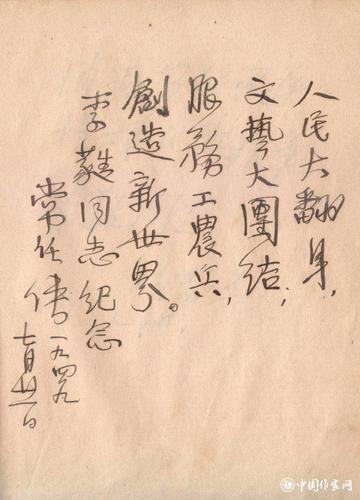 人民大翻身，
文藝大團結，
服務工農兵，
創造新世界。
李蕤同志紀念
常任俠
一九四九
七月廿一日
中国作家网